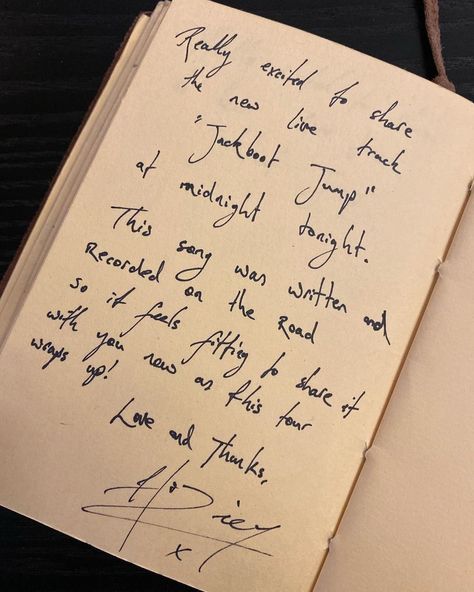 Really excited to share
the new live track
"Jackboot Jump"
at midnight tonight.
This song was written and
Recorded on the Road
so it feels fitting to share it
with you now as this tour
wraps up!
Love and Thanks,
x